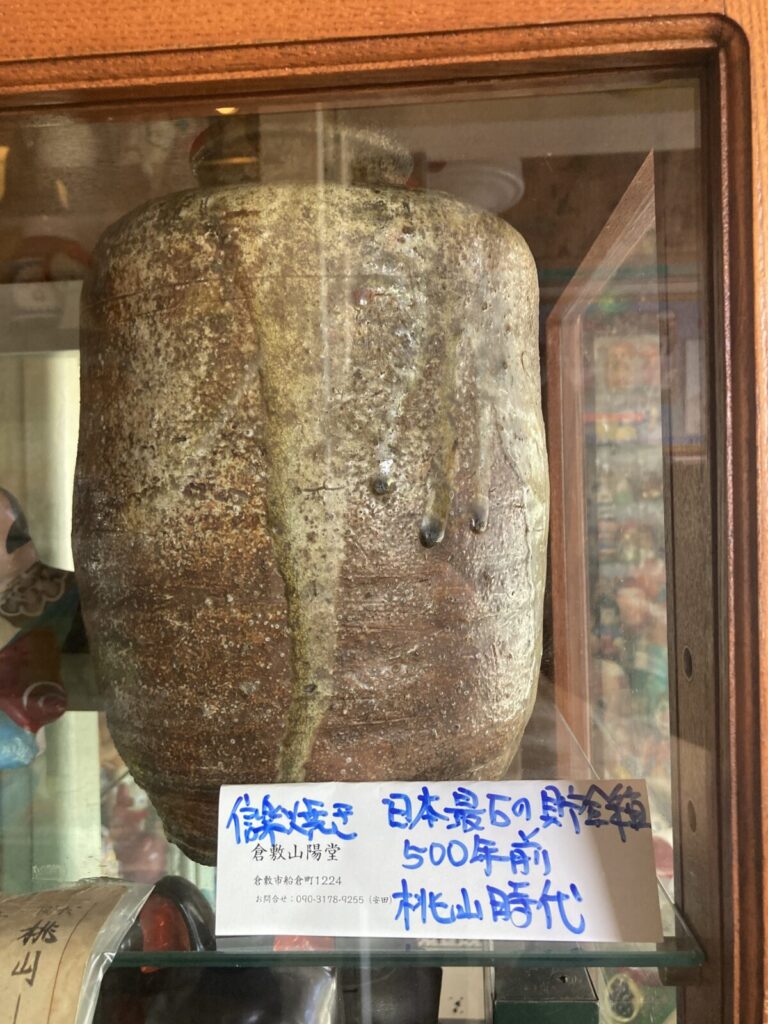 信楽焼き 日本最古の貯金箱
500年前
桃山時代
倉敷山陽堂
倉敷市船倉町1224
お問合せ:090-3178-9255(安田)
桃山